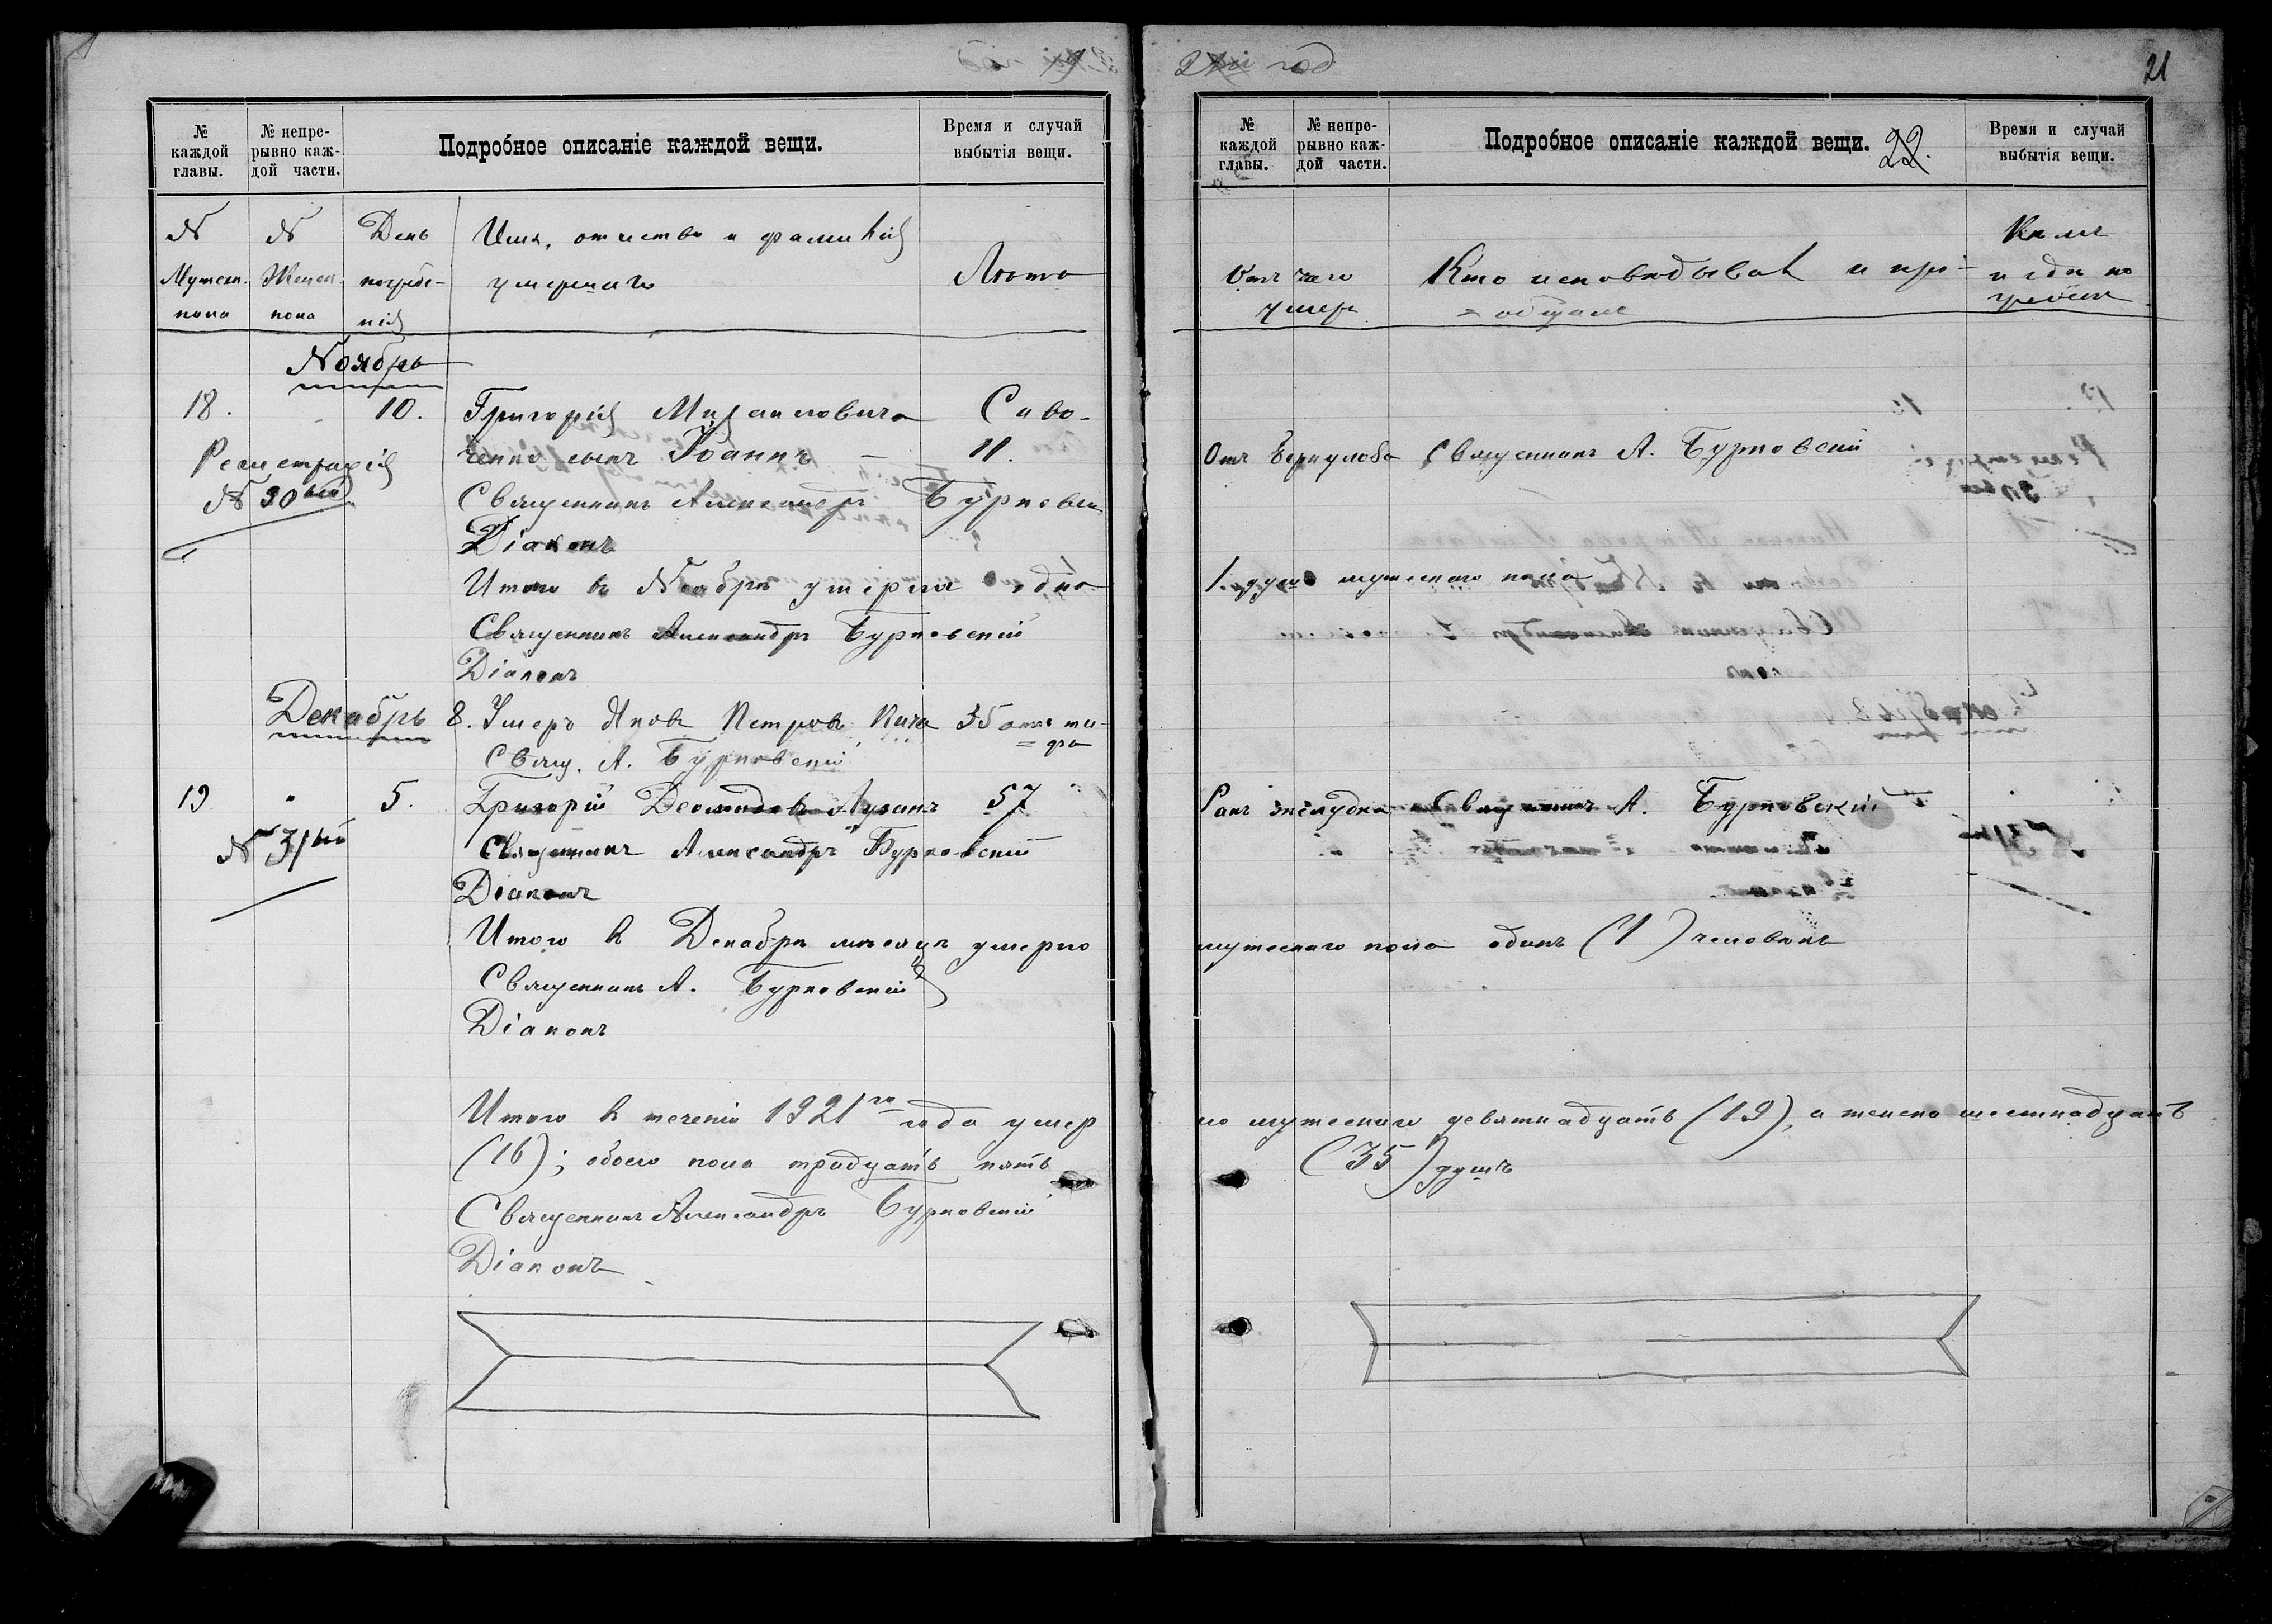 21
№ каждой главы.
№ непре-рывно каж-дой части.
Подробное описаніе каждой вещи.
Время и случай выбытія вещи.
№ Мужеск. пола
№ Женск. пола
День погребе-нія
Имя, отчество и фамилія умершаго
Лѣта
Ноябрь
18.
10.
Григорія Михаиловича Саво-
ченко сынъ Іоаннъ — 11.
Регистрація
№ 30ый
Священникъ Александръ Бурковскій
Діаконъ
Итого въ Ноябрѣ умерла одна
Священникъ Александръ Бурковскій
Діаконъ
Декабрь 8. Умеръ Яковъ Петровъ 35 отъ ти-
фа
Свящ. А. Бурковскій
19 " 5. Григорій 57
№ 31ый
Священникъ Александръ Бурковскій
Діаконъ
Итого въ Декабрѣ мѣсяцѣ умерло
Священникъ А. Бурковскій
Діаконъ
Итого въ теченіи 1921го года умер
(16); обоего пола тридцать пять
Священникъ Александръ Бурковскій
Діаконъ
год
№ каждой главы.
№ непре-рывно каж-дой части.
Подробное описаніе каждой вещи.
22.
Время и случай выбытія вещи.
Отъ чего умеръ
Кто исповѣдывал и прі-
общалъ
Кѣмъ и гдѣ по
Отъ Священникъ А. Бурковскій
1. душа мужескаго пола
Ракъ желудка Священникъ А. Бурковскій
мужескаго пола одинъ (1) человѣкъ
ло мужескаго девятнадцать (19), а женска шестнадцать
(35) душъ